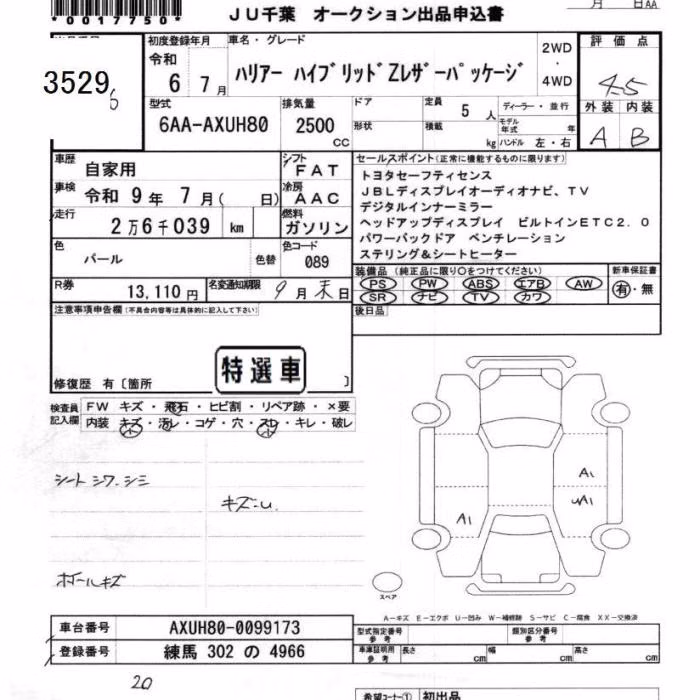 *0017750*
JU千葉 オークション出品申込書
月 日 AA
3529
初度登録年月
令和
6 7月
車名・グレード
ハリアー ハイブリッドZレザーパッケージ
2WD
・
4WD
評価点
4.5
外装 内装
A B
型式
6AA-AXUH80
排気量
2500
CC
ドア
形状
定員
5 人
積載
kg
ディーラー・並行
モデル年式 年
ハンドル 左・右
車歴
自家用
シフト
FAT
車検
令和 9年 7月( 日)
冷房
AAC
走行
2万6千039 km
燃料
ガソリン
色
パール
色替
色コード
089
R券
13,110円
名変通知期限
9月末日
セールスポイント(正常に機能するものに限ります)
トヨタセーフティセンス
JBLディスプレイオーディオナビ、TV
デジタルインナーミラー
ヘッドアップディスプレイ ビルトインETC2.0
パワーバックドア ベンチレーション
ステリング&シートヒーター
装備品(純正品に限り○をつけてください)
PS PW ABS エアB AW
SR ナビ TV カワ
新車保証書
有・無
後日品
注意事項申告欄(不具合内容等は具体的に記入して下さい)
特選車
修復歴 有〔箇所 〕
検査員記入欄
FW キズ・飛石・ヒビ割・リペア跡・×要
内装 キズ・汚レ・コゲ・穴・スレ・キレ・破レ
シート シワ.シミ
キズ.U
ボールキズ
A1
A1
uA1
スペア
A-キズ E-エクボ U-凹み W-補修跡 S-サビ C-腐食 XX-交換済
車台番号
AXUH80-0099173
登録番号
練馬 302 の 4966
型式指定番号
参考
類別区分番号
参考
車庫証明用
参考
長さ cm
幅 cm
高さ cm
20
希望コーナー①
初出品